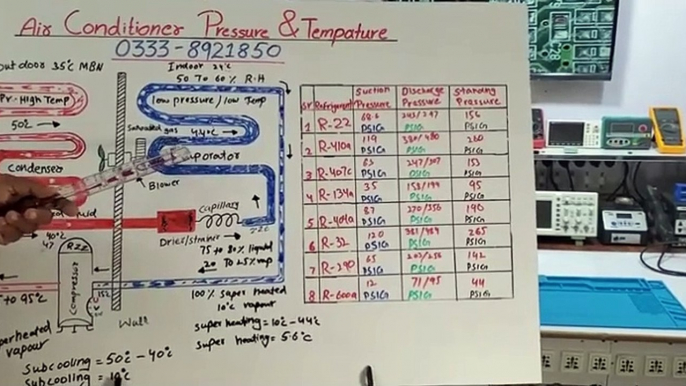 Air Conditioner Pressure & Tempature
0333-8921850
outdoor 35°C MBN
Indoor 24°C
50 To 60% R.H
Pr-High Temp
50%
condenser
low pressure/low Temp
Saturated gas
4.4°C
Blower
Capillary
Drier/strainer
75 to 80% liquid
20 To 25% vap
40°C
R22
Compressor
to 95°C
Wall
100% Saper heated
10°C vapour
super heating = 10°C - 4.4°C
super heating = 5.6°C
superheated
vapour
Subcooling = 50°C - 40°C
Subcooling = 10°C
Sr Refrigerant Suction Pressure Discharge Pressure Standing Pressure
1 R-22 68.6 PSIG PSIG 156 PSIG
2 R-410a 119 PSIG PSIG 260 PSIG
3 R-407c 63 PSIG PSIG 153 PSIG
4 R-134a 35 PSIG 158/199 PSIG 95 PSIG
5 R-404a 87 PSIG 270/356 PSIG 190 PSIG
6 R-32 120 PSIG PSIG 265 PSIG
7 R-290 65 PSIG PSIG 142 PSIG
8 R-600a 12 PSIG 71/95 PSIG 44 PSIG